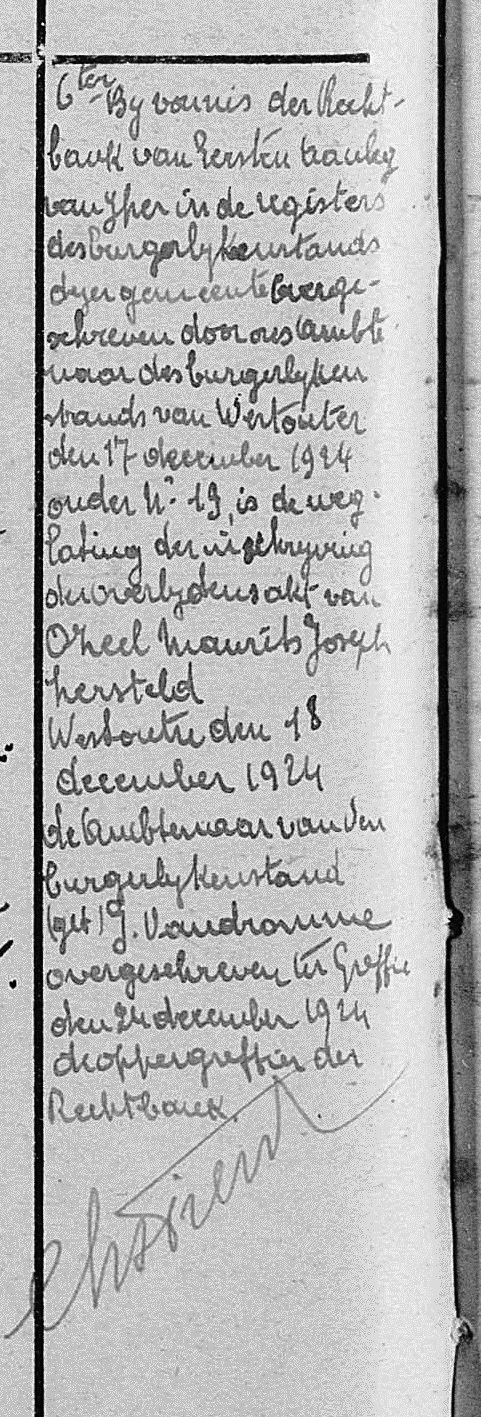 6ter By vonnis der Recht-
bank van Eersten aanleg
van Yper in de registers
des burgerlyken stands
dezer gemeente overge-
schreven door ons Ambte
naar des burgerlyken
stands van Westouter
den 17 december 1924
onder N° 19, is de weg-
lating der inschryving
der overlydensakt van
Oreel Maurits Joseph
hersteld
Westoutre den 18
december 1924
de Ambtenaar van den
burgerlyken stand
(get) J. Vandromme
overgeschreven ter Greffie
den 24 december 1924
de oppergreffier der
Rechtbank.